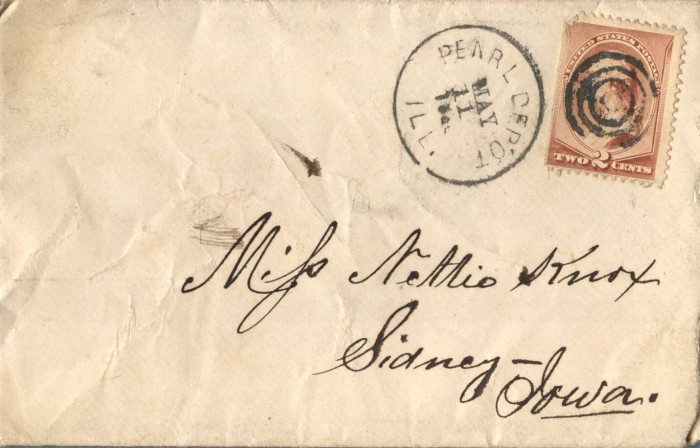 PEARL DEPOT
MAY
11
ILL.
UNITED STATES POSTAGE
TWO 2 CENTS
Miss Nettie Knox
Sidney-
Iowa.